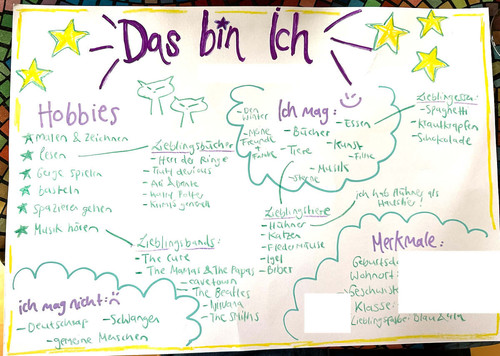 Das bin Ich
Hobbies
malen & zeichnen
lesen
Geige spielen
basteln
spazieren gehen
Musik hören
Lieblingsbücher
- Herr der Ringe
Lieblingsbands:
- The Cure
- The Mamas & The Papas
- cavetown
- The Beatles
- Nirvana
- The Smiths
Ich mag:
- Den Winter
- Meine Freunde + Familie
- Bücher
- Tiere
- Essen
- Kunst
- Filme
- Musik
- Sterne
Lieblingsessen:
- Spaghetti
- Krautkrapfen
- Schokolade
Lieblingstiere
- Hühner
- Katzen
- Fledermäuse
- Igel
- Biber
ich hab Hühner als Haustier!
ich mag nicht:
- Deutschrap
- Schlangen
- gemeine Menschen
Merkmale:
Wohnort:
Klasse:
Lieblingsfarbe: